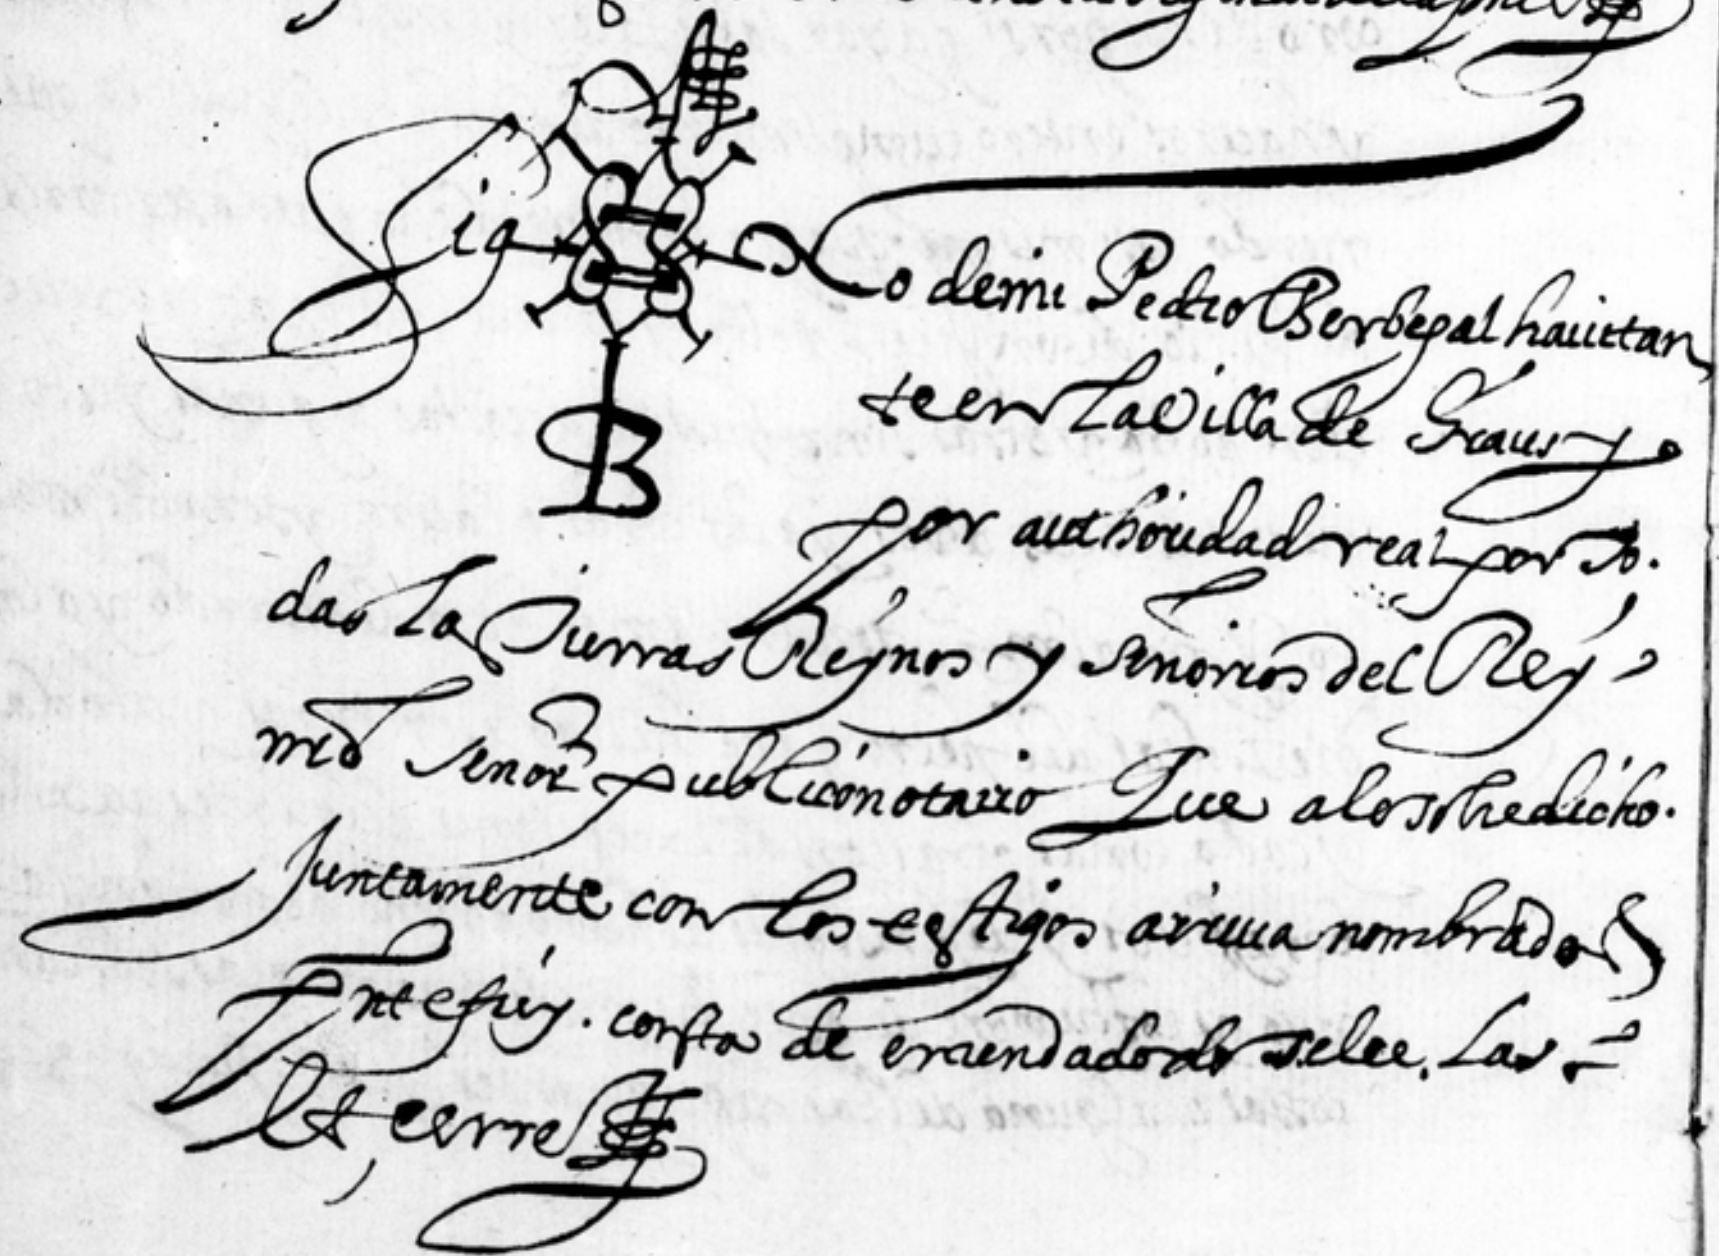 Sig no de mi Pedro Berbegal hauitan
te en la Villa de Graus y
por authoridad real por to
das las tierras Reynos y señorios del Rey
nro señor publico notario Que a lo sobredicho
Juntamente con los testigos arriua nombrados
pnte fuy. consta de enmendado do se lee. las
et cerre